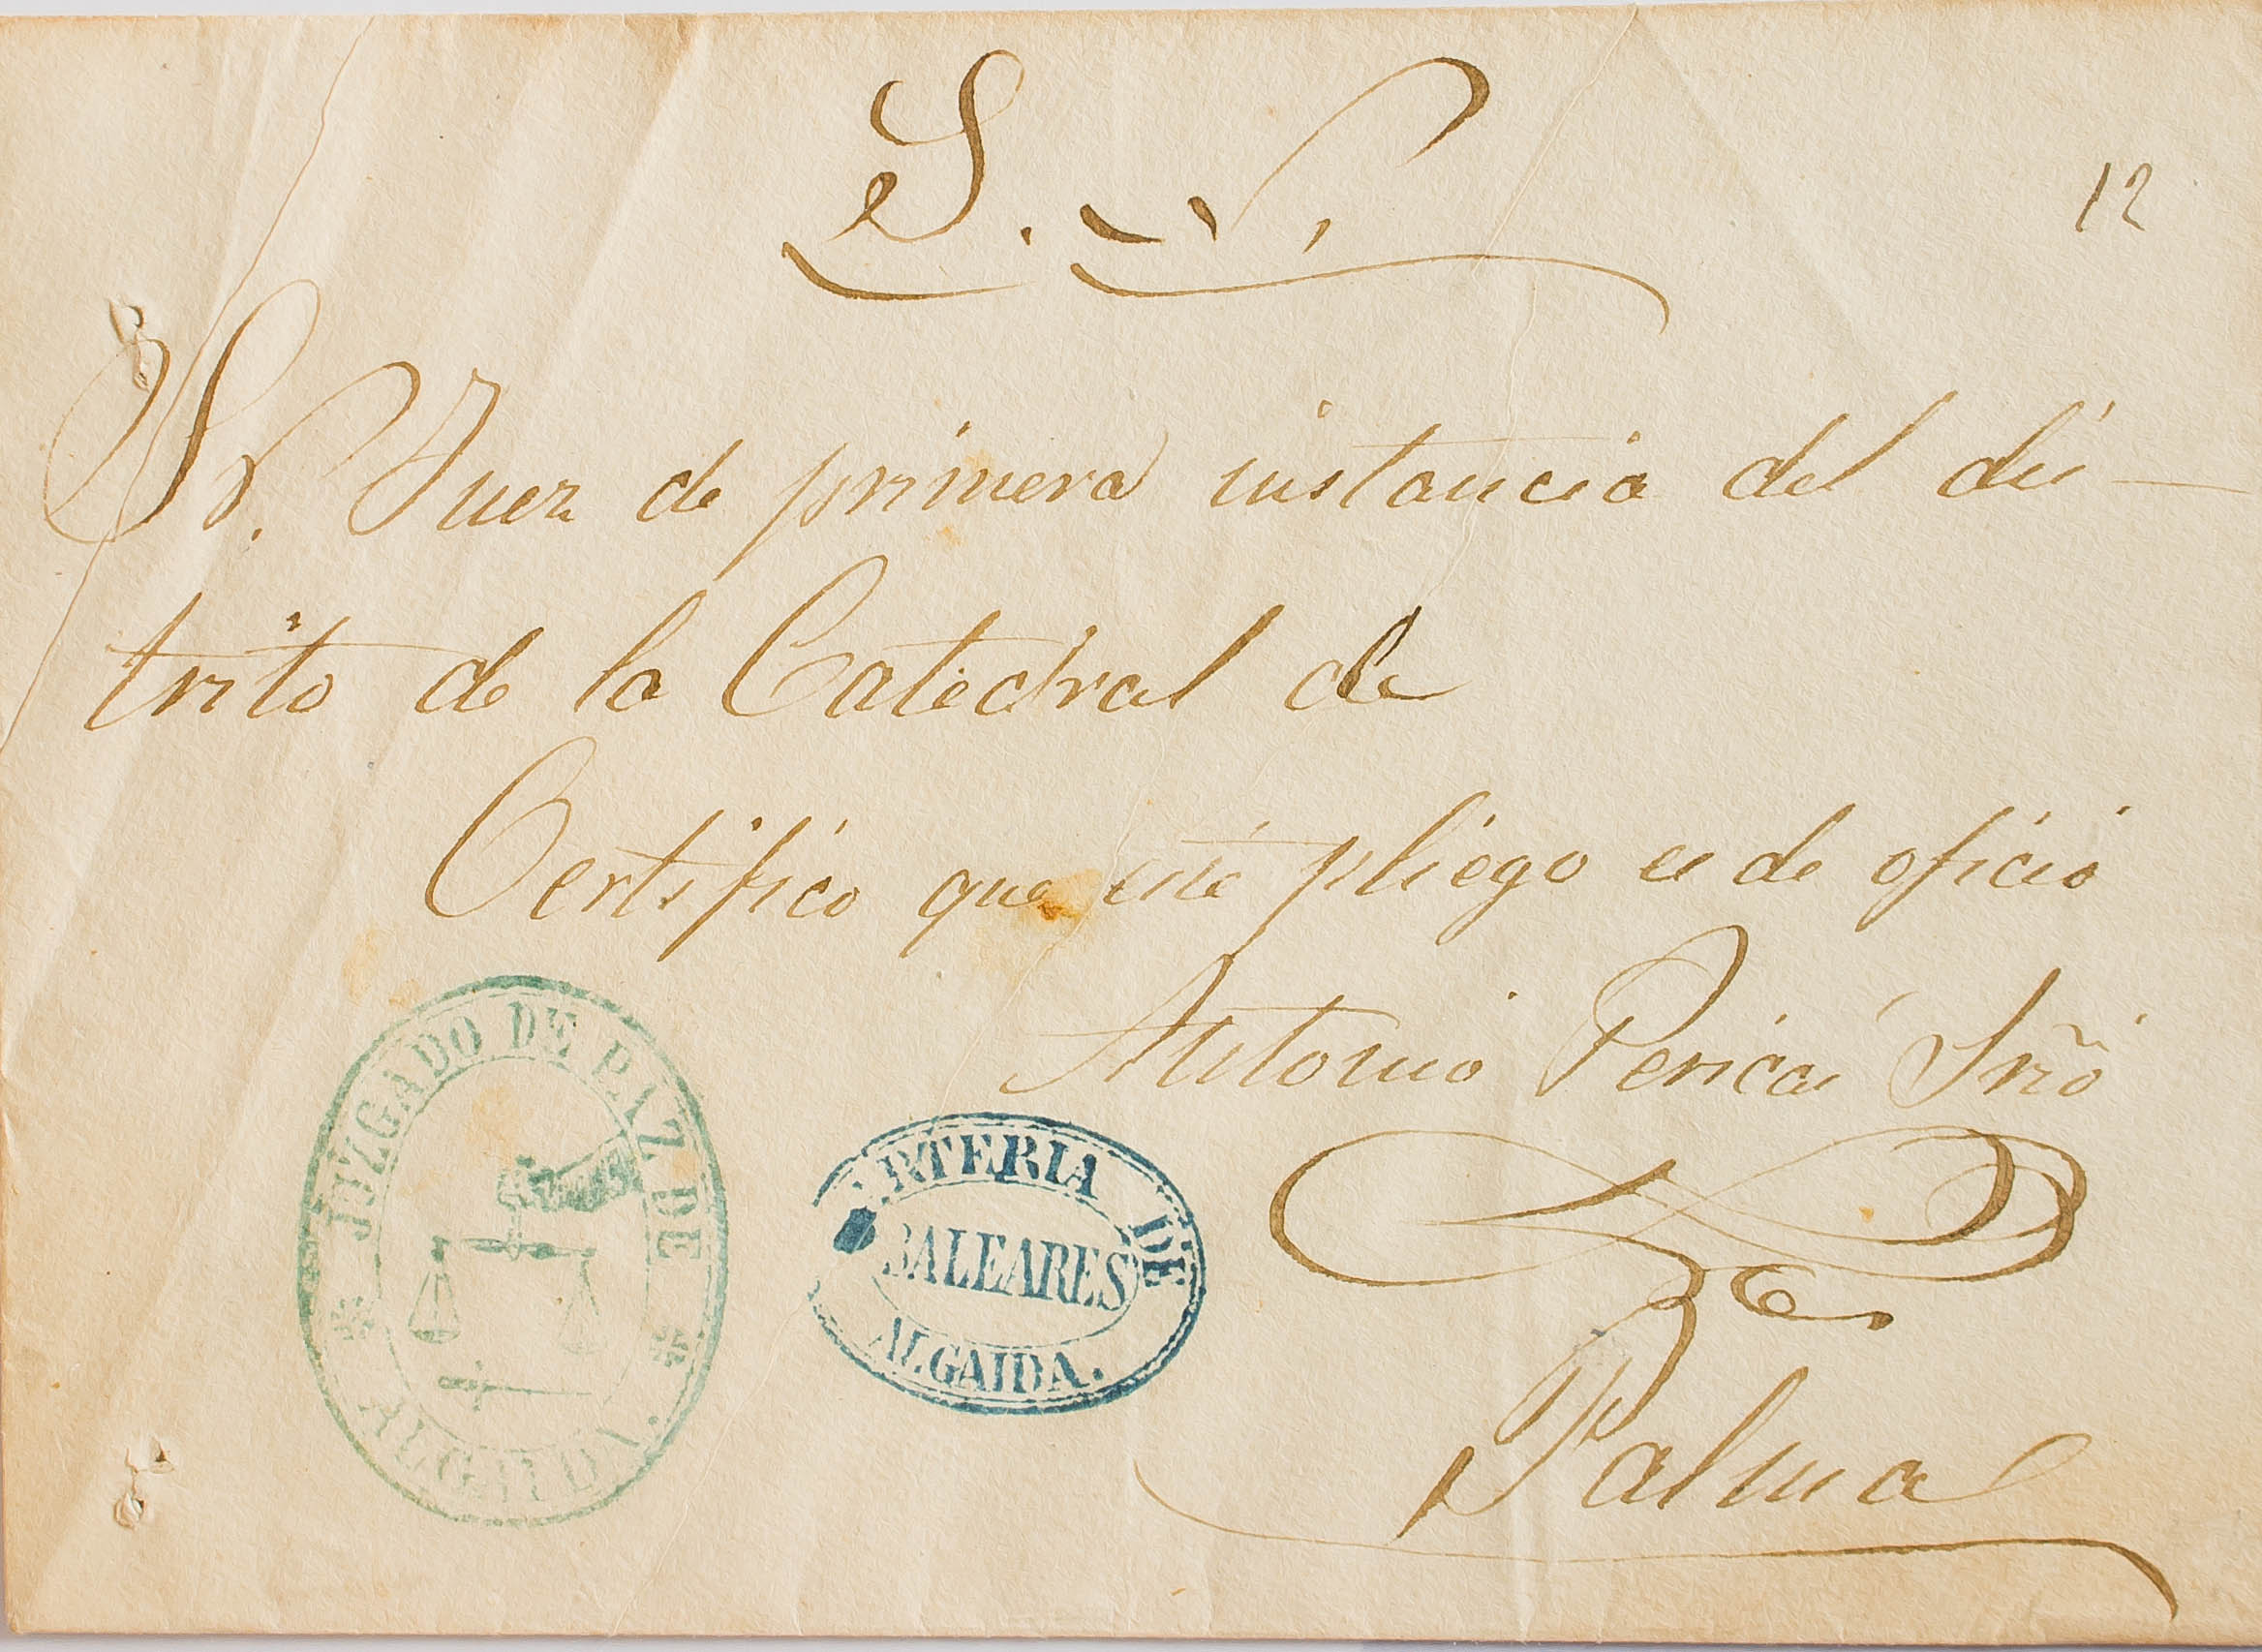 S. N.
12
Sr. Juez de primera instancia del dis-
trito de la Catedral de
Certifico que este pliego es de oficio
Antonio Pericás Srio
JUZGADO DE PAZ DE
ALGAIDA.
ARTERIA DE
BALEARES
ALGAIDA.
Palma